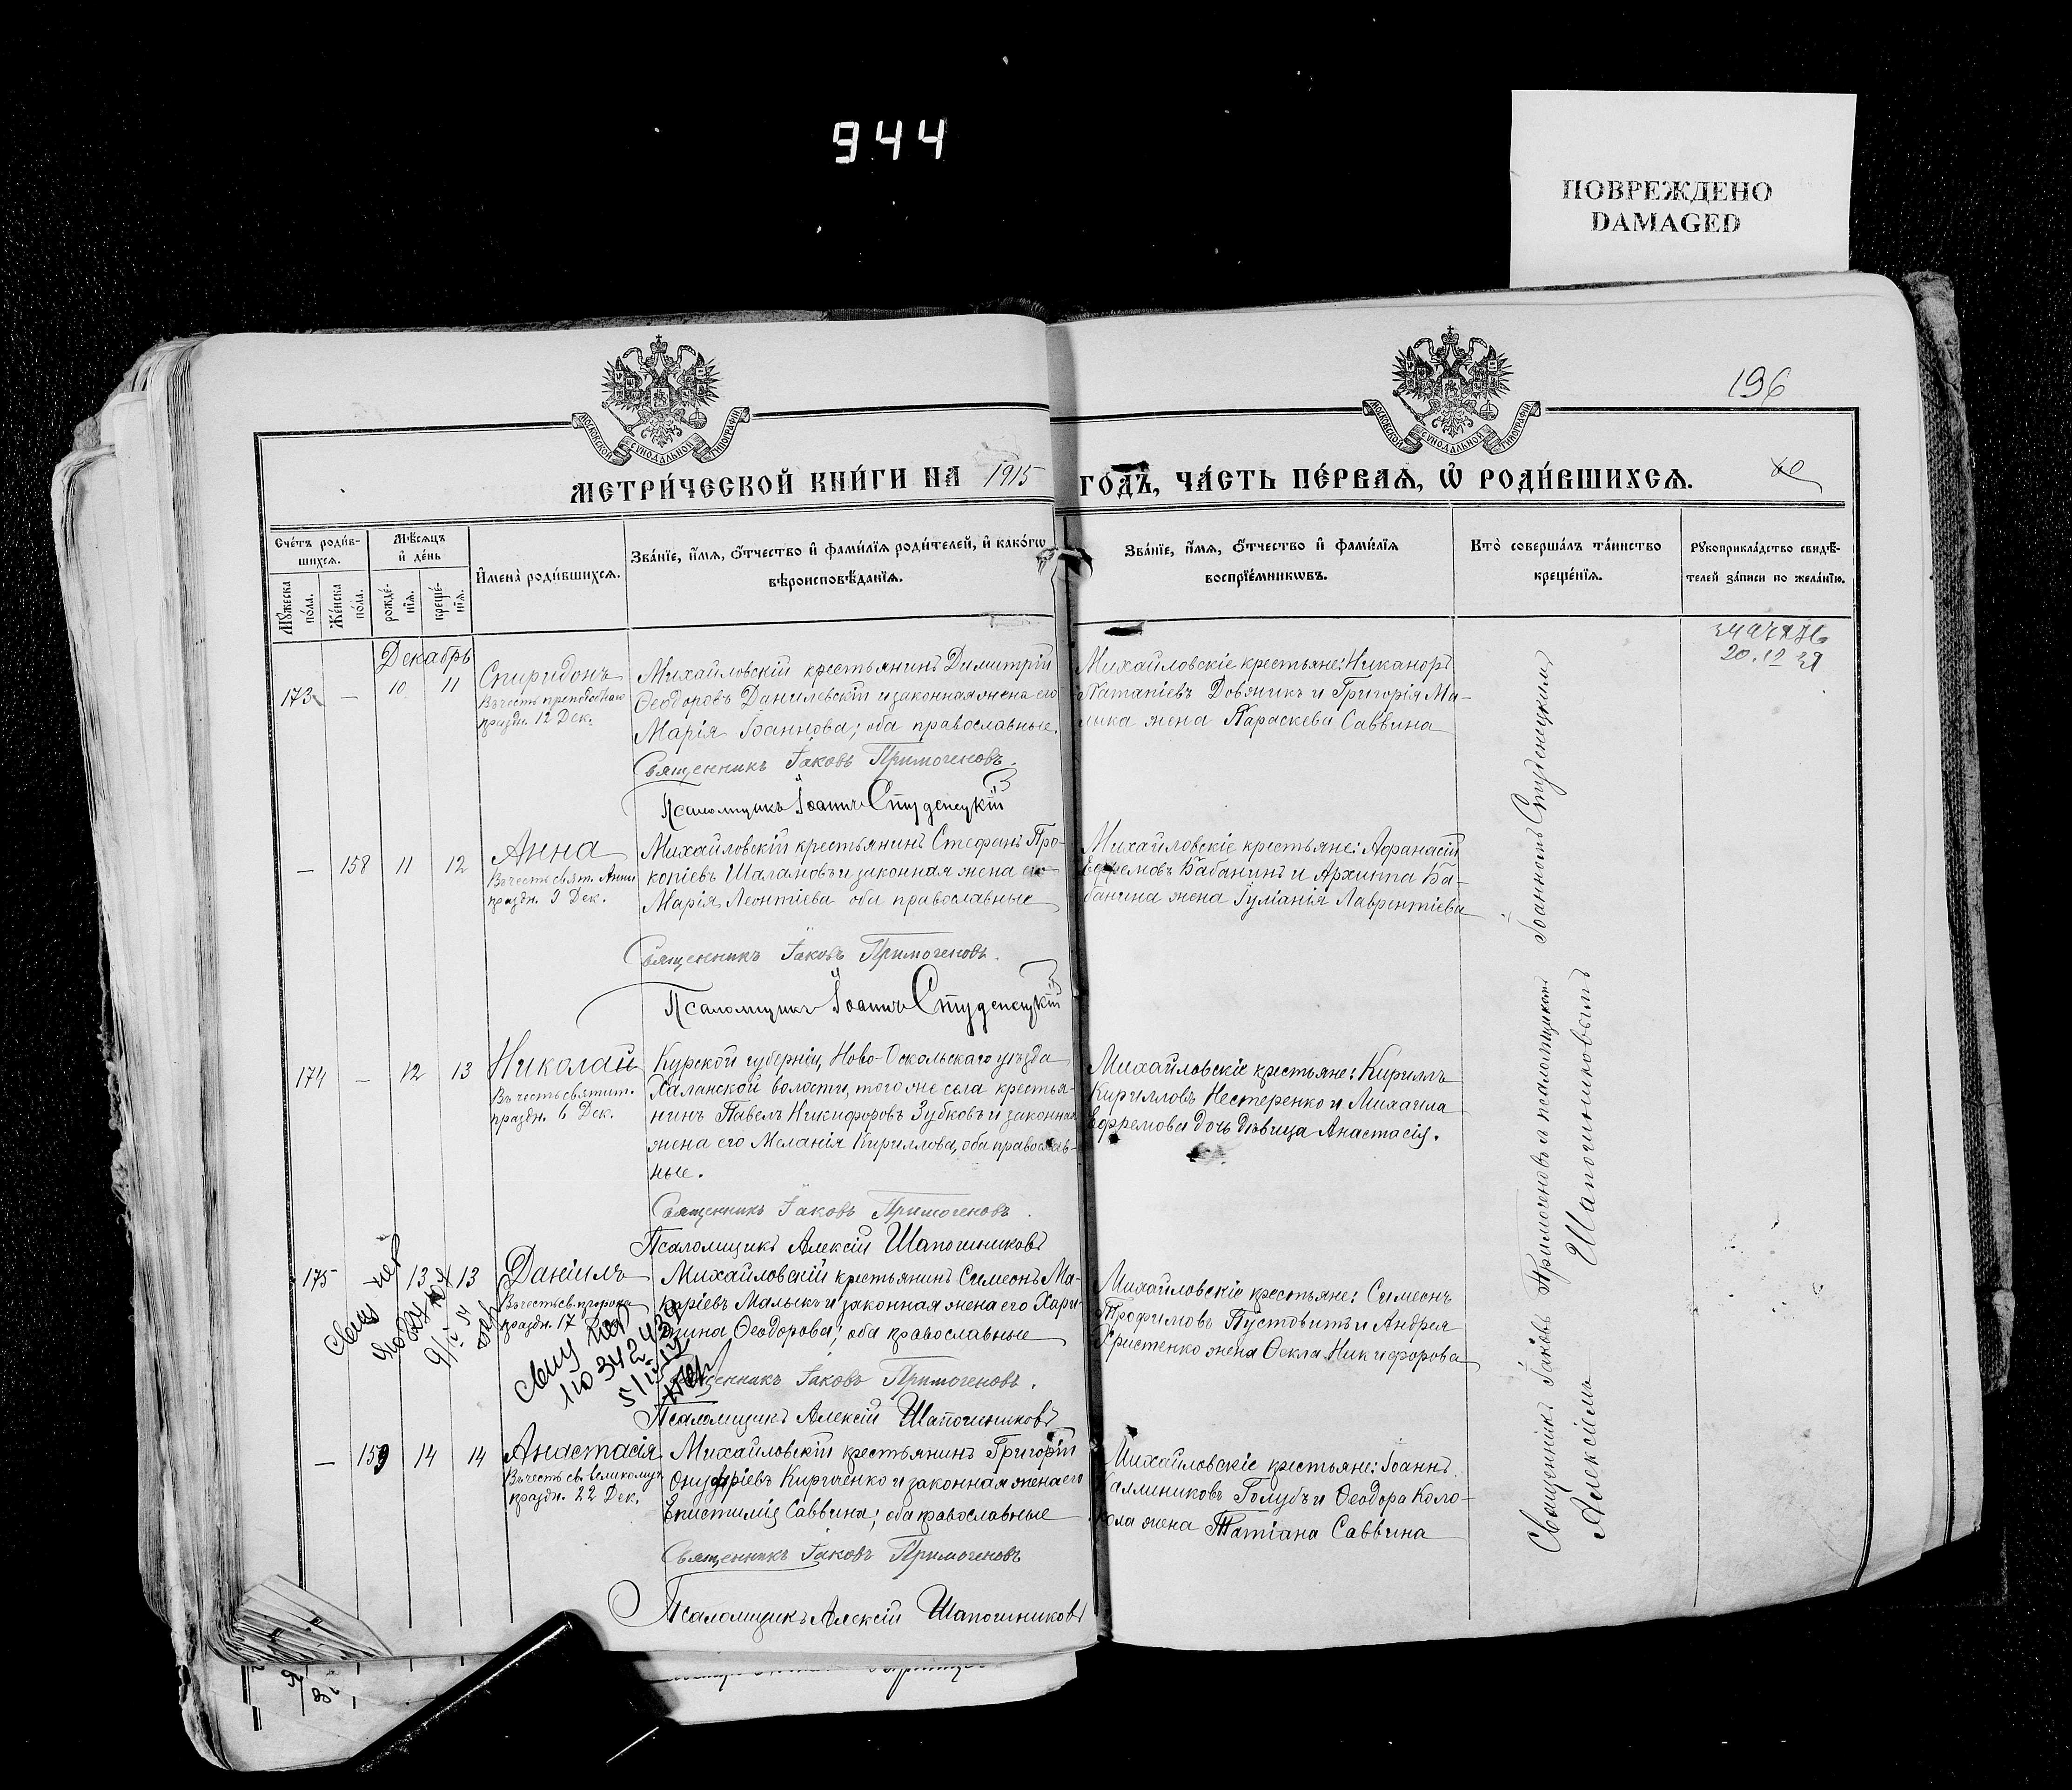 944
ПОВРЕЖДЕНО
DAMAGED
196
МОСКОВСКОЙ СѴНОДАЛЬНОЙ ТИПОГРАФІИ
МОСКОВСКОЙ СѴНОДАЛЬНОЙ ТИПОГРАФІИ
МЕТРИ́ЧЕСКОЙ КНИ́ГИ НА 1915 ГО́ДЪ, ЧА́СТЬ ПЕ́РВАѦ, Ѡ҆ РОДИ́ВШИХСѦ.
60
Сче́тъ роди́в-
шихсѧ.
Мѣ́сѧцъ
и҆ де́нь
Мꙋ́жеска
по́ла.
Же́нска
по́ла.
рожде́-
нїѧ.
креще́-
нїѧ.
И҆мена̀ роди́вшихсѧ.
Зва́нїе, и҆́мѧ, ѻ҆́тчество и҆ фами́лїѧ роди́телей, и҆ како́гѡ
вѣроисповѣ́данїѧ.
Зва́нїе, и҆́мѧ, ѻ҆́тчество и҆ фами́лїѧ
воспрїе́мникѡвъ.
Кто̀ соверша́лъ та́инство
креще́нїѧ.
Рꙋкоприкла́дство свидѣ́-
телей за́писи по жела́нїю.
Декабрь
173 — 10 11
Спиридонъ
Въ честь преподобнаго
праздн. 12 Дек.
Михайловскій крестьянинъ Димитрій
Ѳеодоровъ Данилевскій и законная жена его
Марія Іоаннова; оба православные.
Священникъ Іаковъ Примогеновъ.
Псаломщикъ Іоаннъ Студенецкій
Михайловскіе крестьяне: Никаноръ
Натаніевъ Довжикъ и Григорія Ма-
лыка жена Параскева Саввина
20.12
— 158 11 12
Анна
Въ честь свят. Анны
праздн. 9 Дек.
Михайловскій крестьянинъ Стефанъ Про-
копіевъ Шаламовъ и законная жена его
Марія Леонтіева оба православные
Священникъ Іаковъ Примогеновъ.
Псаломщикъ Іоаннъ Студенецкій
Михайловскіе крестьяне: Аѳанасій
Ефремовъ Бабанинъ и Архипа Ба-
банина жена Іуліанія Лаврентіева
174 — 12 13
Николай
Въ честь святит.
праздн. 6 Дек.
Курской губерніи, Ново-Оскольскаго уѣзда
Халанской волости, того же села крестья-
нинъ Павелъ Никифоровъ Зубковъ и законная
жена его Меланія Кириллова, оба православ-
ные.
Священникъ Іаковъ Примогеновъ.
Псаломщикъ Алексій Шапошниковъ
Михайловскіе крестьяне: Кириллъ
Кирилловъ Нестеренко и Михаила
Ефремова дочь дѣвица Анастасія.
175 13 13
Даніилъ
Въ честь св. пророка
праздн. 17
Михайловскій крестьянинъ Симеонъ Ма-
каріевъ Малыкъ и законная жена его Хари-
тина Ѳеодорова; оба православные
Священникъ Іаковъ Примогеновъ.
Псаломщикъ Алексій Шапошниковъ
Михайловскіе крестьяне: Симеонъ
Трофимовъ Пустовитъ и Андрея
Христенко жена Ѳекла Никифорова
— 159 14 14
Анастасія
Въ честь св. великомуч.
праздн. 22 Дек.
Михайловскій крестьянинъ Григорій
Онуфріевъ Кириченко и законная жена его
Епистимія Саввина; оба православные
Священникъ Іаковъ Примогеновъ
Псаломщикъ Алексій Шапошниковъ
Михайловскіе крестьяне: Іоаннъ
Каллиниковъ Голубъ и Ѳеодора Коло-
кола жена Татіана Саввина
Священникъ Іаковъ Примогеновъ и псаломщикомъ Іоанномъ Студенецкимъ
Алексіемъ Шапошниковымъ